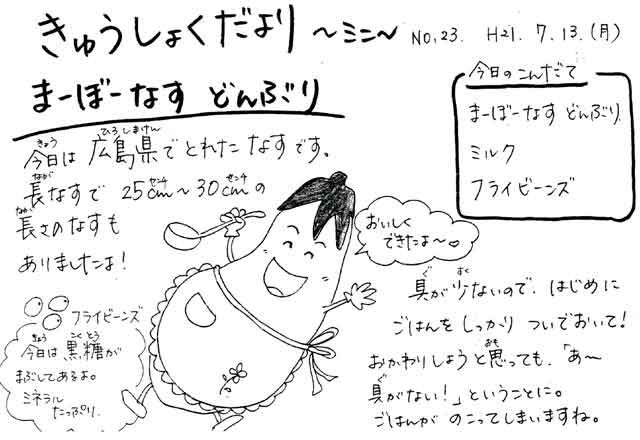 きゅうしょくだより 〜ミニ〜 No.23. H21. 7. 13.(月)
まーぼーなす どんぶり
今日のこんだて
まーぼーなす どんぶり
ミルク
フライビーンズ
きょう ひろしまけん
今日は 広島県で とれた なすです。
なが センチ センチ
長なすで 25cm〜30cmの
なが
長さのなすも
ありましたよ!
おいしく
できたよ〜
フライビーンズ
きょう こくとう
今日は 黒糖が
まぶしてあるよ。
ミネラル
たっぷり。
ぐ すく
具が少ないので、はじめに
ごはんを しっかり ついでおいて!
おも
おかわりしようと思っても、「あ〜
ぐ
具がない!」ということに。
ごはんが のこってしまいますね。